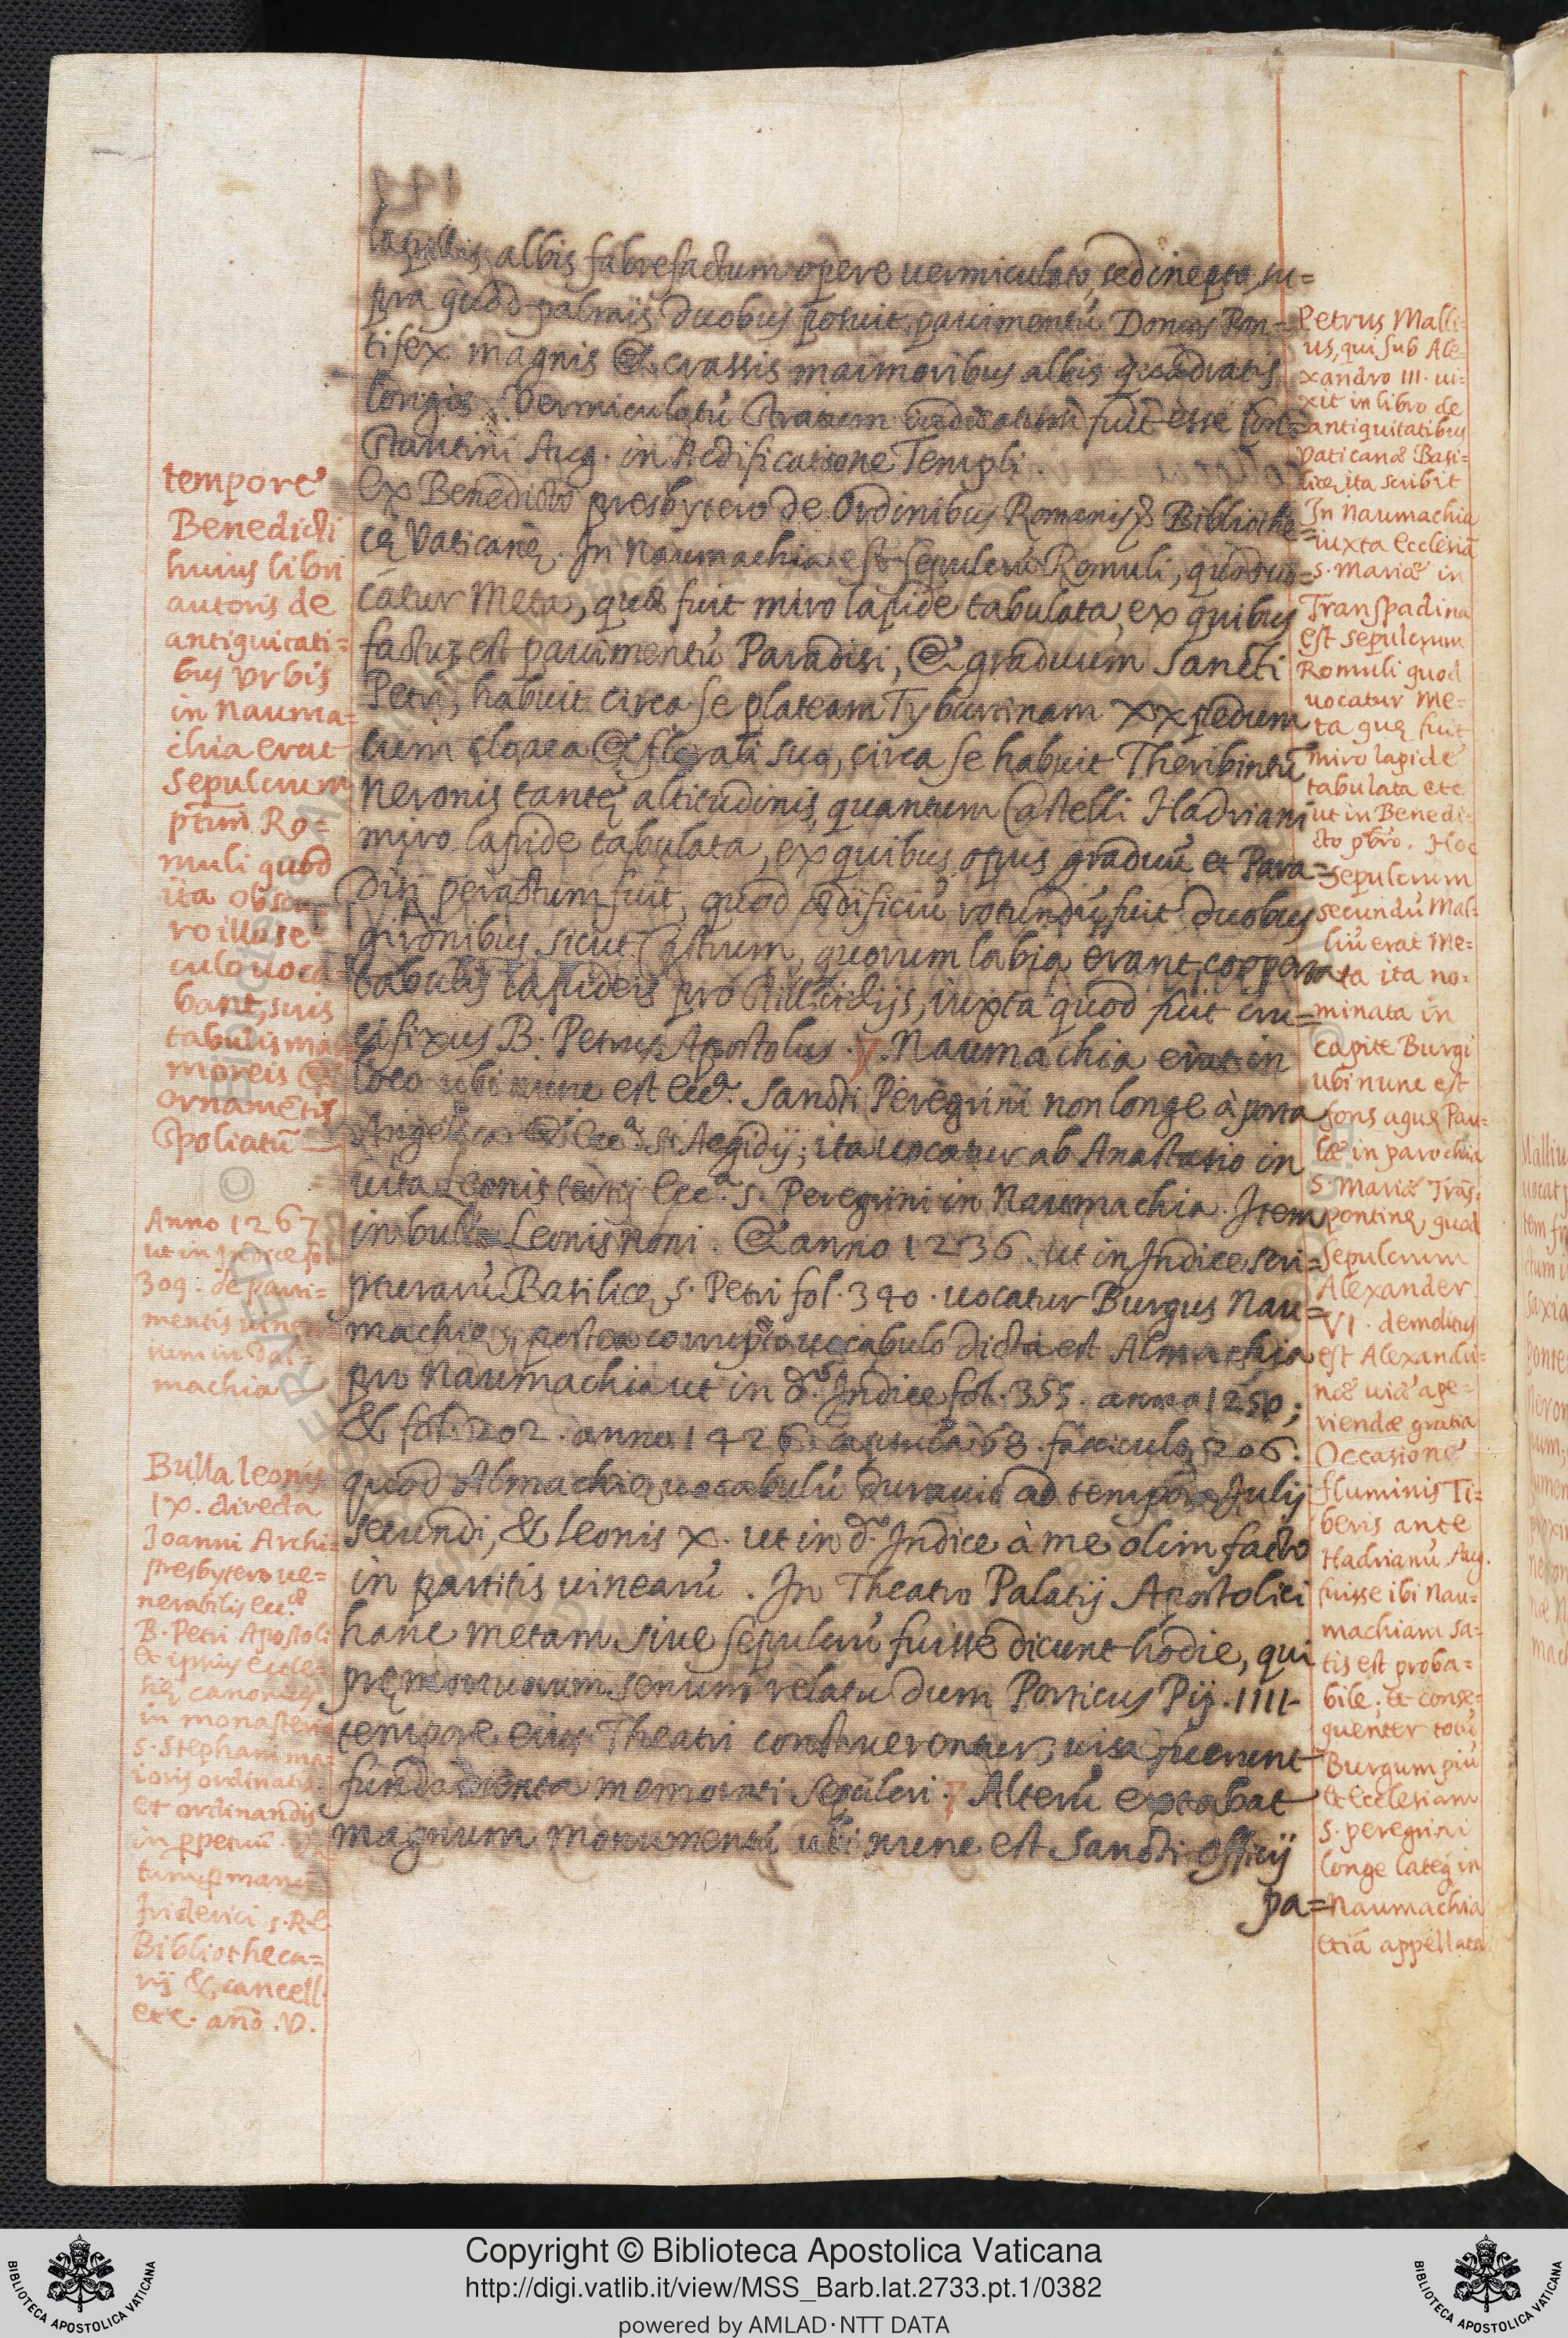 lapillis albis fabrefactum opere uermiculato, sed inepto, su=
pra quod palmis duobus posuit pauimentū Donus Pon=
tifex magnis & crassis marmoribus albis quadratis
longis. Vermiculatū stratum iudicatum fuit esse Con=
stantini Aug. in Aedificatione Templi.
Ex Benedicto presbytero de Ordinibus Romanis Bibliothe=
cę Vaticanę. In Naumachia est sepulcrū Romuli, quod uo=
catur Meta, quæ fuit miro lapide tabulata, ex quibus
factuȝ est pauimentū Paradisi, & graduum Sancti
Petri, habuit circa se plateam Tyburtinam XX pedum
cum cloaca & florali suo, circa se habuit Theribintū
Neronis tantę altitudinis, quantum Castelli Hadriani
miro lapide tabulata, ex quibus opus graduū et Para=
disi peractum fuit, quod ædificiū rotundū fuit duobus
gironibus sicut Castrum, quorum labia erant copperta
tabulis lapideis pro stillicidijs, iuxta quod fuit cru=
cifixus B. Petrus Apostolus. Naumachia erat in
loco ubi nunc est Ecc.ª Sancti Peregrini non longe à porta
Angelica & Ecc.ª S. Aegidij; ita uocatur ab Anastasio in
uita Leonis tertij Ecc.ª S. Peregrini in Naumachia. Item
in bulla Leonis Noni. & anno 1236. ut in Indice scri=
pturarū Basilicę S. Petri fol. 340. uocatur Burgus Nau=
machiæ, postea corrupto uocabulo dicta est Almachia
pro Naumachia ut in d.º Indice fol. 355. anno 1250;
& fol. 202. anno 1426 capsula 68. fasciculo 206.
quod Almachię uocabulū durauit ad tempora Julij
secundi, & Leonis X. ut in d.º Indice à me olim facto
in partitis uinearū. In Theatro Palatij Apostolici
hanc metam siue sepulcrū fuisse dicunt hodie, qui
senum relatu dum Porticus Pij IIII
tempore eius Theatri construerentur, uisa fuerunt
fundamenta memorati sepulcri. Alterū extabat
magnum monumentū ubi nunc est Sancti Officij
pa=
tempore
Benedicti
huius libri
autoris de
antiquitati=
bus Vrbis
in Nauma=
chia erat
sepulcrum
Ro=
muli quod
ita obscu
ro illo se=
culo uoca
bant, suis
tabulis mar
moreis &
ornamētis
spoliatū
Anno 1267
ut in Indice fol
309. de paui=
mentis uinea
machia
Bulla Leonis
IX. directa
Joanni Archi=
presbytero ue=
nerabilis Ecc.æ
B. Petri Apostoli
& ipsius Eccle=
się canonicis
in monasterio
S. Stephani ma=
ioris ordinatis
et ordinandis
in ppetuū.
manu
Friderici S.R.E
Bibliotheca=
rij & cancell.
etc. año .V.
Petrus Malli=
us, qui sub Ale=
xandro III. ui=
xit in libro de
antiquitatibus
Vaticanæ Basi=
licę ita scribit
In Naumachia
iuxta Ecclesiā
S. Mariæ in
Transpadina
est sepulcrum
Romuli quod
uocatur Me=
ta quę fuit
miro lapide
tabulata etc
ut in Benedi=
cto pbro. Hoc
sepulcrum
secundū Mal=
liū erat Me=
ta ita no=
minata in
capite Burgi
ubi nunc est
fons aquę Pau=
læ in parochia
S. Mariæ Trās=
pontinę quod
sepulcrum
Alexander
VI. demolitus
est Alexandri=
næ uiæ ape=
riendæ gratia
Occasione
fluminis Ti=
beris ante
Hadrianū Aug.
fuisse ibi Nau=
machiam sa=
tis est proba=
bile; et conse=
quenter totū
Burgum piū
& Ecclesiam
S. Peregrini
longe lateq in
Naumachia
etiā appellata
Copyright © Biblioteca Apostolica Vaticana
http://digi.vatlib.it/view/MSS_Barb.lat.2733.pt.1/0382
powered by AMLAD·NTT DATA
BIBLIOTECA APOSTOLICA VATICANA
BIBLIOTECA APOSTOLICA VATICANA